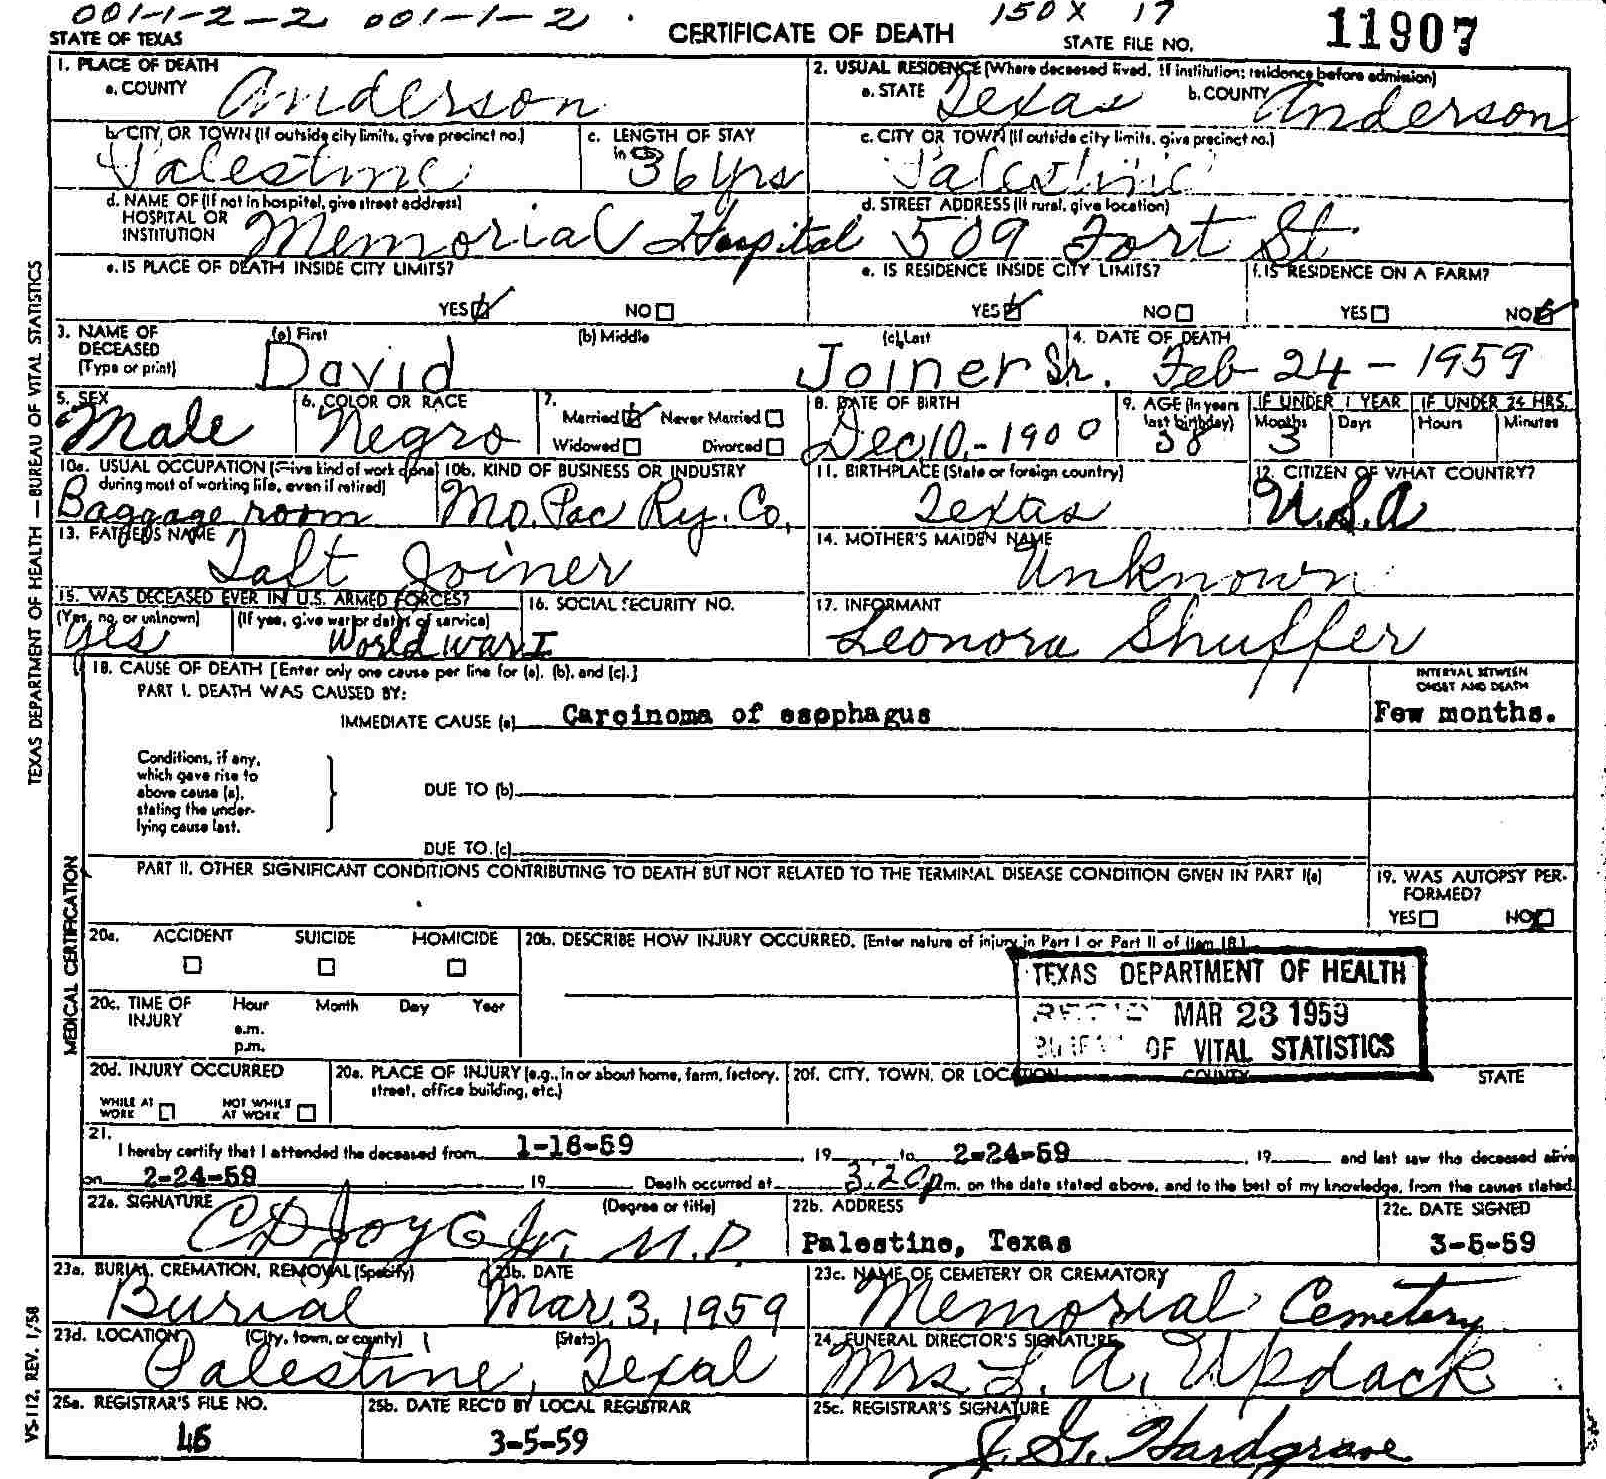 001-1-2-2 001-1-2 150X 17
STATE OF TEXAS CERTIFICATE OF DEATH STATE FILE NO. 11907
1. PLACE OF DEATH
a. COUNTY Anderson
2. USUAL RESIDENCE (Where deceased lived. If institution; residence before admission)
a. STATE Texas b. COUNTY Anderson
b. CITY OR TOWN (If outside city limits, give precinct no.) Palestine
c. LENGTH OF STAY in 36 yrs
c. CITY OR TOWN (If outside city limits, give precinct no.) Palestine
d. NAME OF (If not in hospital, give street address)
HOSPITAL OR
INSTITUTION Memorial Hospital
d. STREET ADDRESS (If rural, give location)
509 Fort St
e. IS PLACE OF DEATH INSIDE CITY LIMITS?
YES NO
e. IS RESIDENCE INSIDE CITY LIMITS?
YES NO
f. IS RESIDENCE ON A FARM?
YES NO
3. NAME OF
DECEASED
(Type or print)
(a) First (b) Middle (c) Last
David Joiner Sr.
4. DATE OF DEATH
Feb 24 - 1959
5. SEX
Male
6. COLOR OR RACE
Negro
7.
Married Never Married
Widowed Divorced
8. DATE OF BIRTH
Dec 10, - 1900
9. AGE (In years
last birthday)
58
IF UNDER 1 YEAR IF UNDER 24 HRS.
Months Days Hours Minutes
3
10a. USUAL OCCUPATION (Give kind of work done
during most of working life, even if retired)
Baggage room
10b. KIND OF BUSINESS OR INDUSTRY
Mo. Pac Ry. Co.
11. BIRTHPLACE (State or foreign country)
Texas
12. CITIZEN OF WHAT COUNTRY?
U.S.A
13. FATHER'S NAME
Taft Joiner
14. MOTHER'S MAIDEN NAME
Unknown
15. WAS DECEASED EVER IN U.S. ARMED FORCES?
(Yes, no, or unknown) (If yes, give war or dates of service)
yes World War I
16. SOCIAL SECURITY NO.
17. INFORMANT
Leonora Shuffer
18. CAUSE OF DEATH [Enter only one cause per line for (a), (b), and (c).]
PART I. DEATH WAS CAUSED BY:
IMMEDIATE CAUSE (a) Carcinoma of esophagus
INTERVAL BETWEEN
ONSET AND DEATH
Few months.
Conditions, if any,
which gave rise to
above cause (a),
stating the under-
lying cause last.
DUE TO (b)
DUE TO (c)
PART II. OTHER SIGNIFICANT CONDITIONS CONTRIBUTING TO DEATH BUT NOT RELATED TO THE TERMINAL DISEASE CONDITION GIVEN IN PART I(a)
19. WAS AUTOPSY PER-
FORMED?
YES NO
20a. ACCIDENT SUICIDE HOMICIDE
20b. DESCRIBE HOW INJURY OCCURRED. (Enter nature of injury in Part I or Part II of item 18.)
20c. TIME OF
INJURY
Hour Month Day Year
a.m.
p.m.
TEXAS DEPARTMENT OF HEALTH
REC'D MAR 23 1959
BUREAU OF VITAL STATISTICS
20d. INJURY OCCURRED
WHILE AT
WORK
NOT WHILE
AT WORK
20e. PLACE OF INJURY (e.g., in or about home, farm, factory,
street, office building, etc.)
20f. CITY, TOWN, OR LOCATION COUNTY STATE
21.
I hereby certify that I attended the deceased from 1-16-59 , 19 to 2-24-59 , 19 and last saw the deceased alive
on 2-24-59 19 Death occurred at 3:20 p m. on the date stated above, and to the best of my knowledge, from the causes stated.
22a. SIGNATURE (Degree or title)
M.D.
22b. ADDRESS
Palestine, Texas
22c. DATE SIGNED
3-5-59
23a. BURIAL, CREMATION, REMOVAL (Specify)
Burial
23b. DATE
Mar. 3, 1959
23c. NAME OF CEMETERY OR CREMATORY
Memorial Cemetery
23d. LOCATION (City, town, or county) (State)
Palestine, Texas
24. FUNERAL DIRECTOR'S SIGNATURE
Mrs L. A. Updack
25a. REGISTRAR'S FILE NO.
45
25b. DATE REC'D BY LOCAL REGISTRAR
3-5-59
25c. REGISTRAR'S SIGNATURE
J. G. Hardgrave
TEXAS DEPARTMENT OF HEALTH — BUREAU OF VITAL STATISTICS
MEDICAL CERTIFICATION
VS-112, REV. 1/58